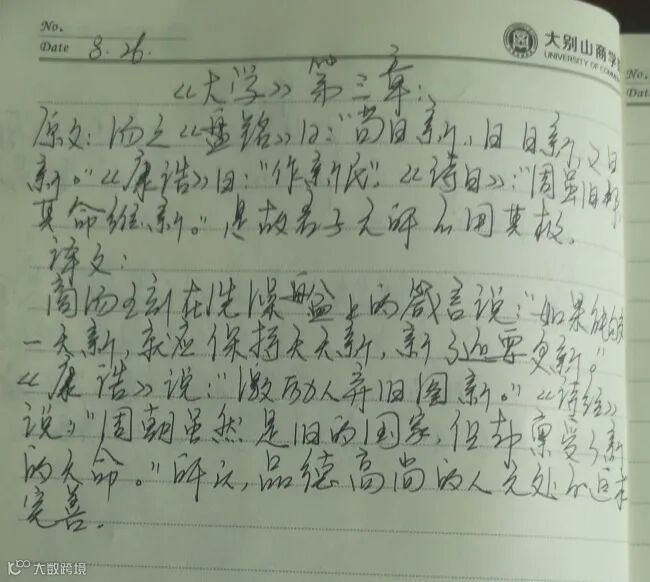 No.
Date 8.26.
大别山商学
UNIVERSITY OF COMM
No.
Dat
《大学》第三章:
原文:汤之《盘铭》曰:"苟日新,日日新,又日
新。"《康诰》曰:"作新民"。《诗曰》:"周虽旧邦
其命维新。"是故君子无所不用其极。
译文:
商汤王刻在洗澡盘上的箴言说:"如果能够
一天新,就应保持天天新,新了还要更新。"
《康诰》说:"激励人弃旧图新。"《诗经》
说:"周朝虽然是旧的国家,但却禀受了新
的天命。"所以,品德高尚的人无处不追求
完善。
大数跨境